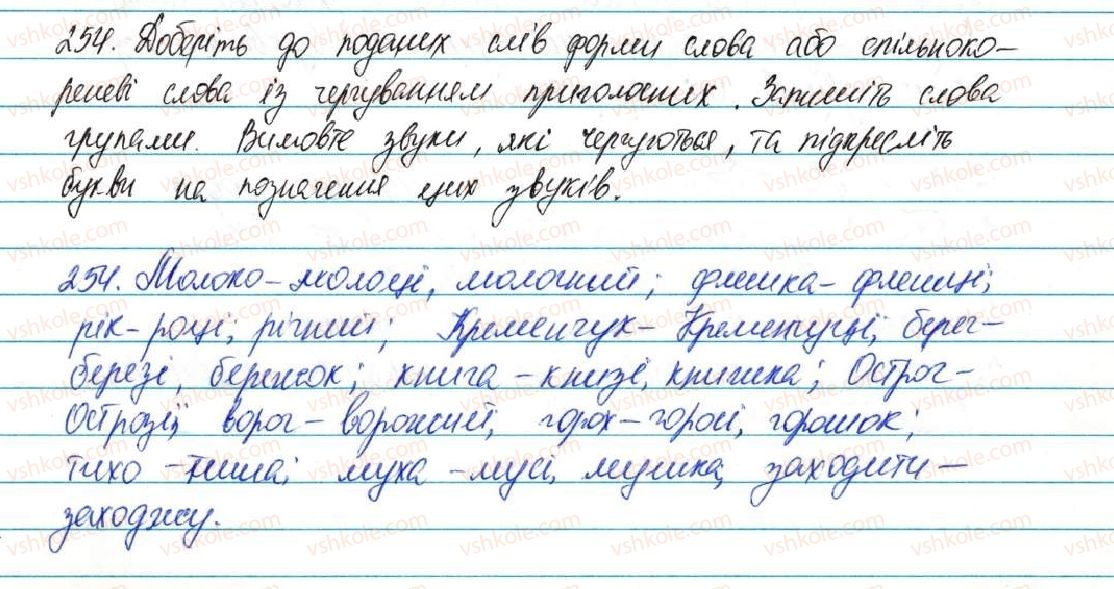 254. Доберіть до поданих слів форми слова або спільноко-
реневі слова із чергуванням приголосних. Запишіть слова
групами. Вимовте звуки, які чергуються, та підкресліть
букви на позначення цих звуків.
254. Молоко - молоці, молочний;
рік - році; річний; Кременчук - Кременчуці; берег -
березі, бережок; книга - книзі, книжка; Острог -
Острозі; ворог - ворожий, горох - горосі, горошок;
тихо - тиша; муха - мусі, мушка, заходити -
заходжу.